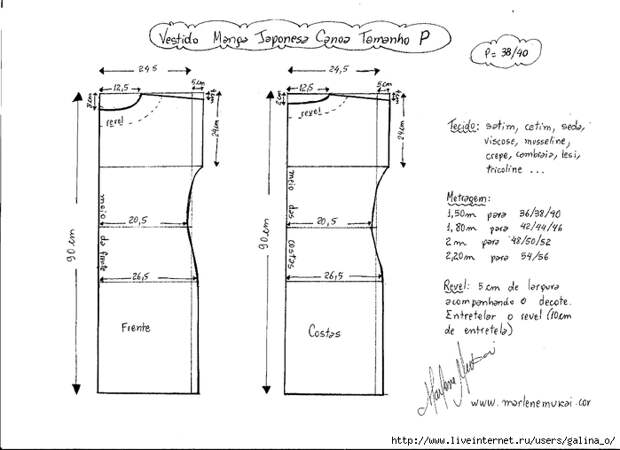 Vestido Manga Japonesa Canoa Tamanho P
P= 38/40
24,5
5cm
12,5
revel
24cm
90 cm
meio da frente
20,5
26,5
Frente
24,5
5cm
12,5
revel
24cm
90 cm
meio das costas
20,5
26,5
Costas
Tecido: setim, cetim, seda,
viscose, musseline,
crepe, cambraia, lesi,
tricoline ...
Metragem:
1,50m para 36/38/40
1,80m para 42/44/46
2m para 48/50/52
2,20m para 54/56
Revel: 5cm de largura
acompanhando o decote.
Entretelar o revel (10cm
de entretela)
Marlene Mukai
www.marlenemukai.cor
http://www.liveinternet.ru/users/galina_o/